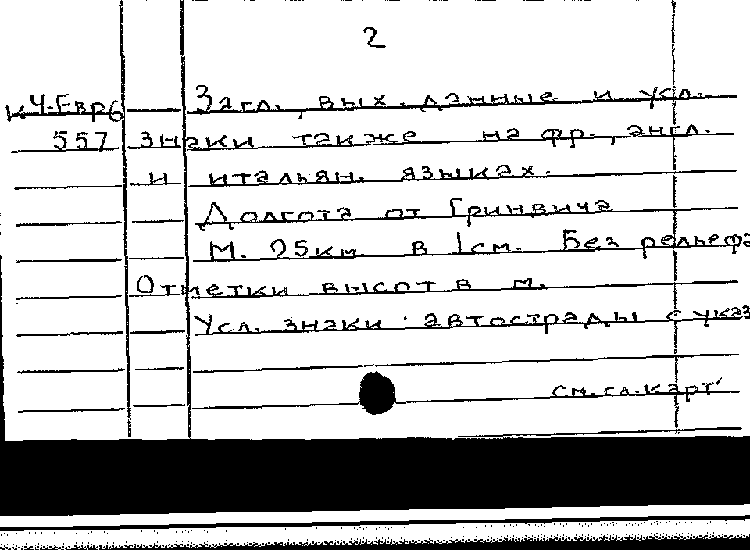 2
К4-Евр6 Загл., вых. данные и усл.
557 знаки также на фр., англ.
и итальян. языках.
Долгота от Гринвича
М. 25км в 1см. Без рельефа
Отметки высот в м.
Усл. знаки: автострады с указ
см.сл.карт